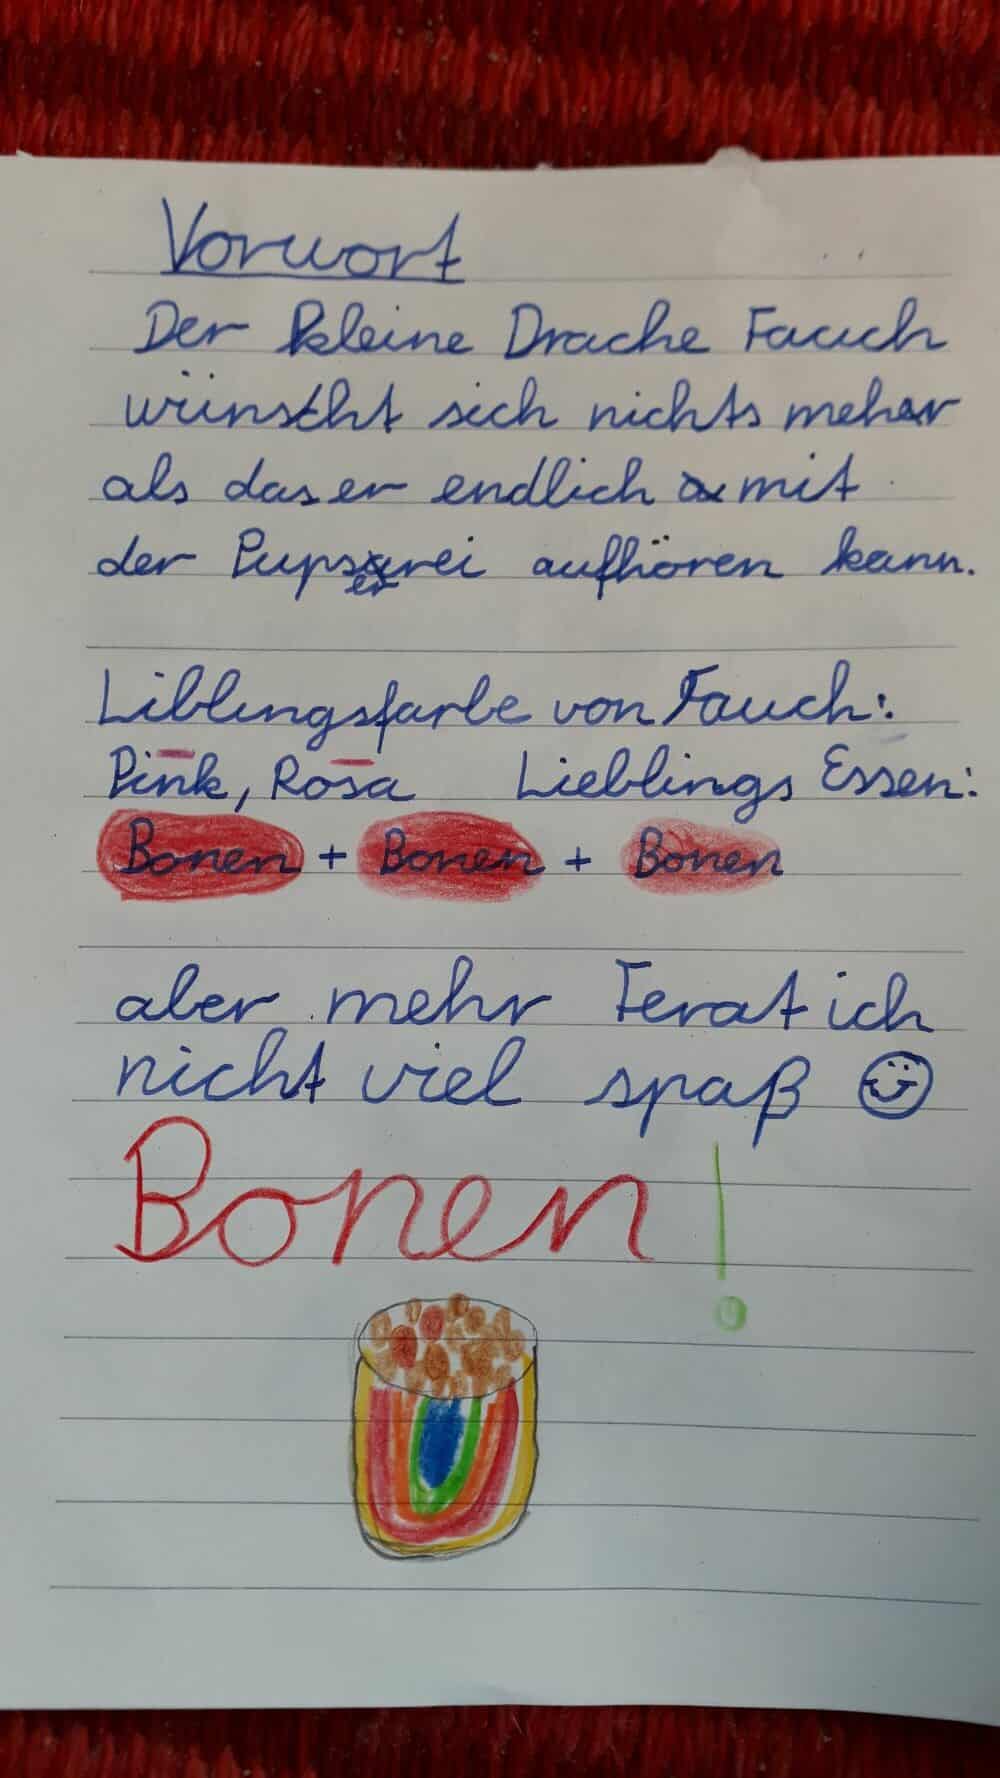 Vorwort
Der kleine Drache Fauch
wünscht sich nichts mehr
als das er endlich mit
der Pupserei aufhören kann.
Liblingsfarbe von Fauch:
Pink, Rosa Lieblings Essen:
Bonen + Bonen + Bonen
aber mehr Ferat ich
nicht viel spaß
Bonen!